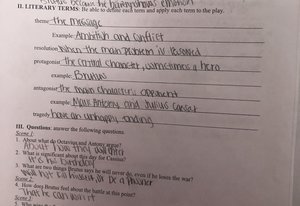 II. LITERARY TERMS: Be able to define each term and apply each term to the play.
theme the message
Example: Ambition and conflict
resolution when the main problem is resolved
protagonist the central character, sometimes a hero
example: Brutus
antagonist the main characters opponent
example: Marc Antony and Julius Caesar
tragedy have an unhappy ending
III. Questions: answer the following questions.
Scene 1:
1. About what do Octavius and Antony argue?
About how they
2. What is significant about this day for Cassius?
It's his birthday
3. What are two things Brutus says he will never do, even if he loses the war?
Will not kill himself or be a prisoner
Scene 2:
4. How does Brutus feel about the battle at this point?
That he can win it
Scene 3: